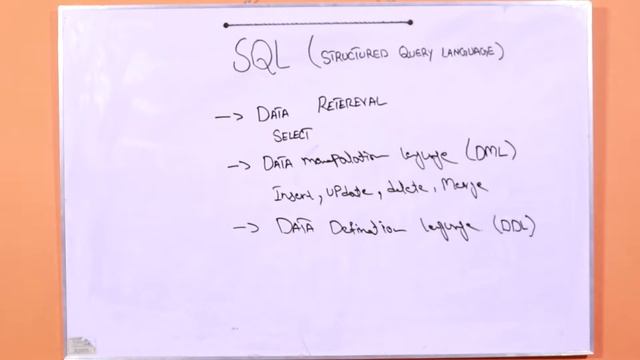 SQL (STRUCTURED QUERY LANGUAGE)
→ DATA RETEREVAL
SELECT
→ DATA manipalation language (DML)
Insert, UPdate, delete, Merge
→ DATA Defination language (DDL)